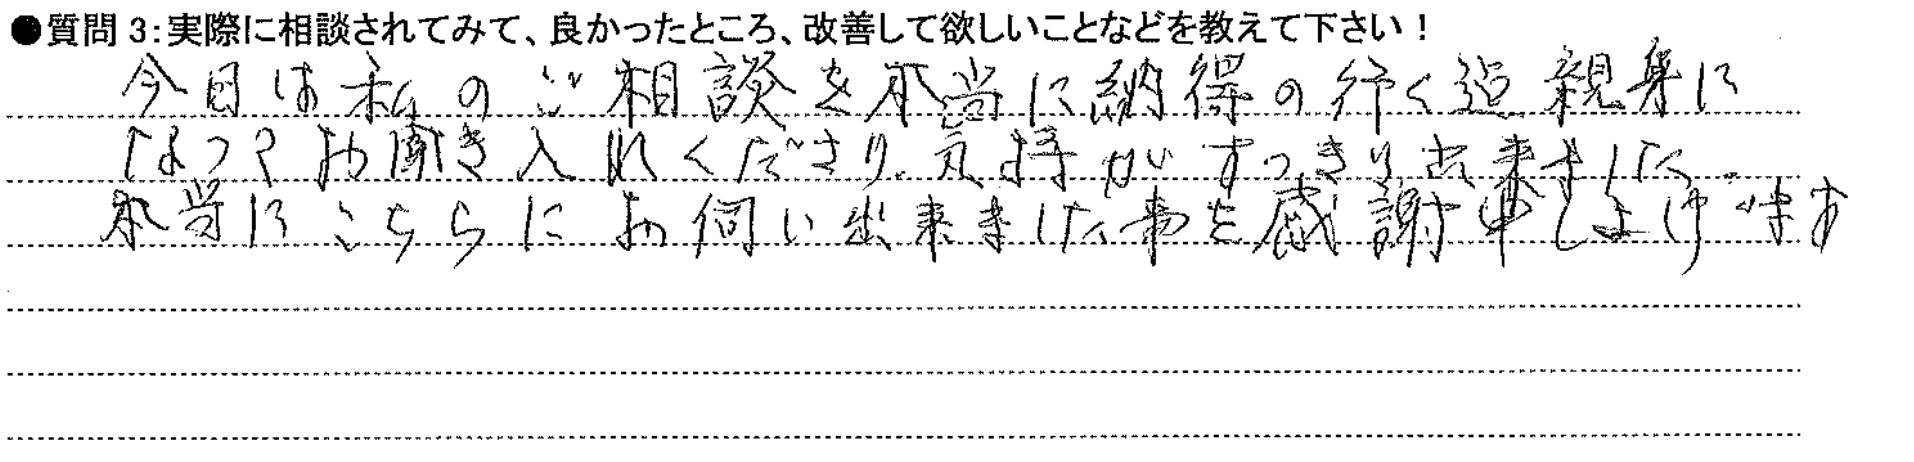 ●質問 3:実際に相談されてみて、良かったところ、改善して欲しいことなどを教えて下さい!
今日は私のご相談を本当に納得の行く迄親身に
なってお聞き入れくださり、気持がすっきり出来ました。
本当にこちらにお伺い出来ました事を感謝申し上げます